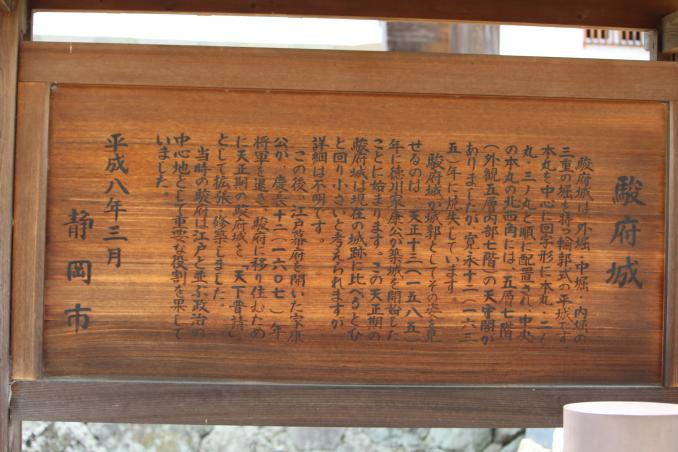 駿府城
駿府城は、外堀・中堀・内堀の
三重の堀を持つ輪郭式の平城です。
本丸を中心に回字形に本丸・二ノ
丸・三ノ丸と順に配置され、中央
の本丸の北西角には、五層七階
（外観五層内部七階）の天守閣が
ありましたが、寛永十二（一六三
五）年に焼失しています。
駿府城が城郭としてその姿を見
せるのは、天正十三（一五八五）
年に徳川家康公が築城を開始した
ことに始まります。この天正期の
駿府城は現在の城跡に比べるとひ
と回り小さいと考えられますが
詳細は不明です。
この後、江戸幕府を開いた家康
公が、慶長十二（一六〇七）年
将軍を退き、駿府に移り住むため
に天正期の駿府城を「天下普請」
として拡張、修築しました。
当時の駿府は江戸と並ぶ政治の
中心地として重要な役割を果して
いました。
平成八年三月
静岡市